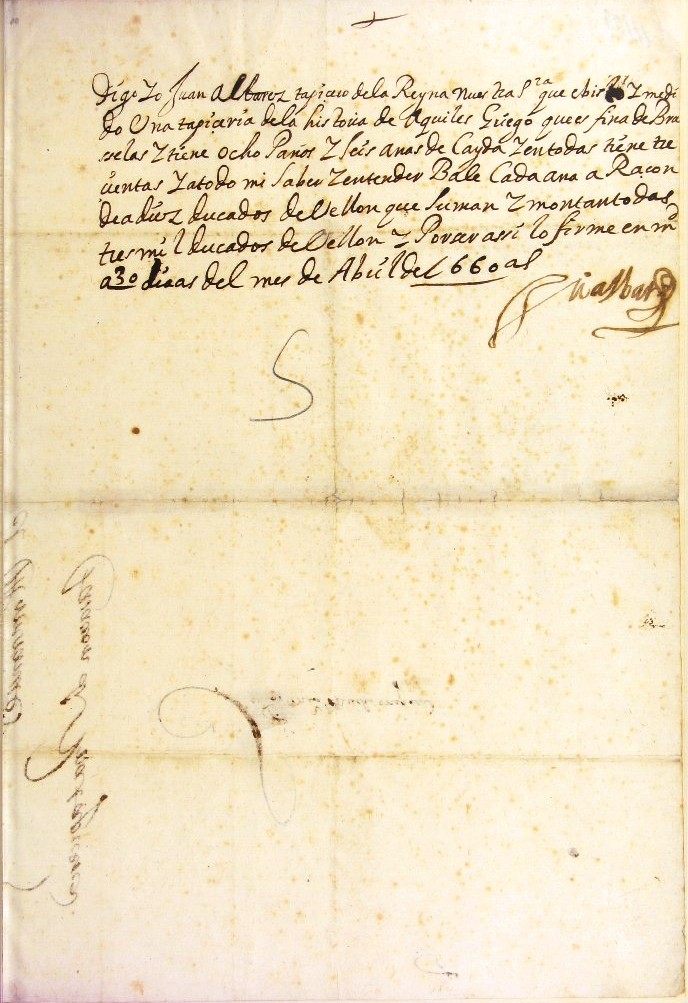 Digo Yo Juan albarez tapicero de la Reyna nuestra S.ra que e bisto Y medi
do Una tapiceria de la historia de Aquiles Griego que es fina de Bru
selas Y tiene ocho Paños Y seis anas de Cayda Y en todas tiene tre
cientas Y a todo mi Saber Y entender Bale Cada ana a Racon
de a diez ducados de Vellon que suman Y montan todas
tres mil ducados de Vellon Y Por ser assi lo firme en m.d
a 30 dias del mes de Abril de 1660 as
Ju albarez